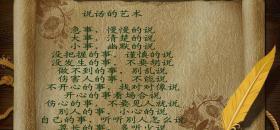 说话的艺术
急事，慢慢的说
大事，清楚的说
小事，幽默的说
没把握的事，谨慎的说
没发生的事，不要胡说
做不到的事，别乱说
伤害人的事，不能说
不开心的事，找对对像说
开心的事看场合说
伤心的事，不要见人就说
别人的事，小心的说
自己的事，听听别人怎么说
尊长的事